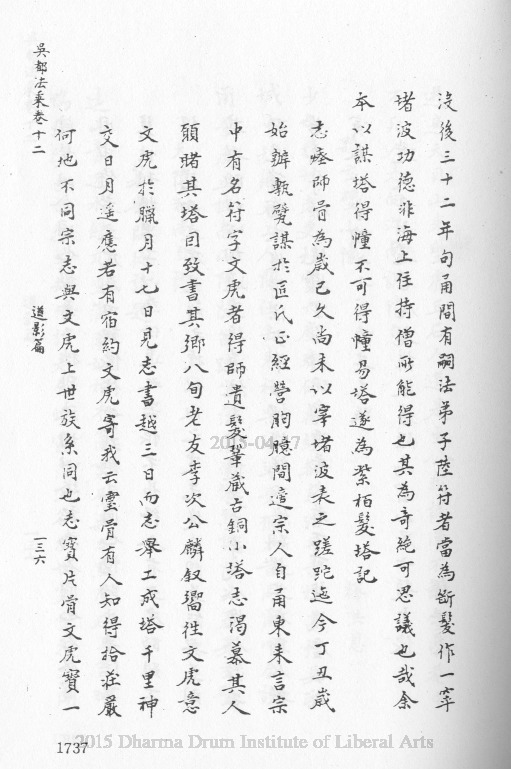 沒後三十二年句甬間有嗣法弟子陸符者當為斷髮作一窣
堵波功德非海上住持僧所能得也其為奇絶可思議也哉余
本以謀塔得幢不可得幢易塔遂為紫栢髮塔記
志瘞師骨為歲已久尚未以窣堵波表之蹉跎迄今丁丑歲
始辦執甓謀於匠氏正經營胸臆間遣宗人自甬東来言宗
中有名符字文虎者得師遺髮葬藏古銅小塔志渴慕其人
願睹其塔因致書其鄉八旬老友李次公麟叙嚮徃文虎意
文虎於臘月十七日見志書越三日而志舉工成塔千里神
交日月遥應若有宿約文虎寄我云靈骨有人知得拾莊嚴
何地不同宗志與文虎上世族系同也志寳片骨文虎寳一
吳都法乘卷十二
道影篇
一三六
1737
2015-04-17
2015 Dharma Drum Institute of Liberal Arts